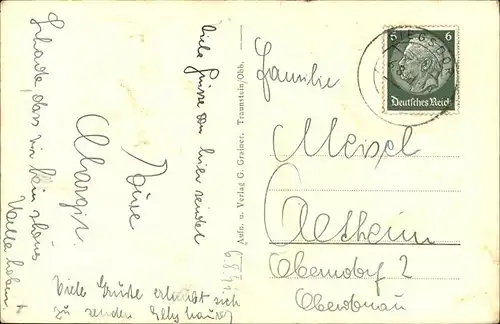 Viele Grüsse von hier sendet
Eure
Margit.
Schade, dass wir kein schönes
Wetter haben.
Viele Grüße erlaubt sich
zu senden
Aufn. u. Verlag G. Grainer, Traunstein/Obb.
6 6
Deutsches Reich
Familie
Meisel
Aetheim
Oberndorf 2